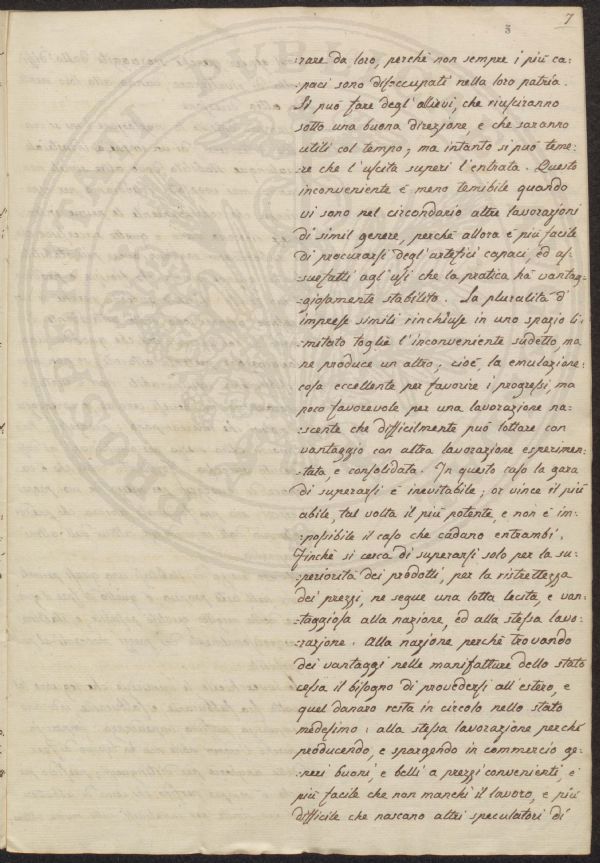 7
3
:rare da loro, perchè non sempre i più ca:
paci sono disoccupati nella loro patria.
Si può fare degl'allievi, che riusciranno
sotto una buona direzione, e che saranno
utili col tempo; ma intanto si può teme:
:re che l'uscita superi l'entrata. Questo
inconveniente è meno temibile quando
vi sono nel circondario altre lavorazioni
di simil genere, perchè allora è più facile
di procurarsi degl'artefici capaci, ed as:
:suefatti agl'usi che la pratica ha vantag:
:giosamente stabilito. La pluralità d'
imprese simili rinchiuse in uno spazio li:
:mitato toglie l'inconveniente sudetto, ma
ne produce un altro; cioè, la emulazione:
cosa eccellente per favorire i progressi, ma
poco favorevole per una lavorazione na:
:scente che difficilmente può lottare con
vantaggio con altra lavorazione esperimen:
:tata, e consolidata. In questo caso la gara
di superarsi è inevitabile; or vince il più
abile, tal volta il più potente, e non è im:
:possibile il caso che cadano entrambi.
Finchè si cerca di superarsi solo per la su:
:periorità dei prodotti, per la ristrettezza
dei prezzi, ne segue una lotta lecita, e van:
:taggiosa alla nazione, ed alla stessa lavo:
:razione. Alla nazione perchè trovando
dei vantaggi nelle manifatture dello stato
cessa il bisogno di provedersi all'estero, e
quel danaro resta in circolo nello stato
medesimo: alla stessa lavorazione perchè
producendo, e spargendo in commercio ge:
:neri buoni, e belli a prezzi convenienti, è
più facile che non manchi il lavoro, e più
difficile che nascano altri speculatori di